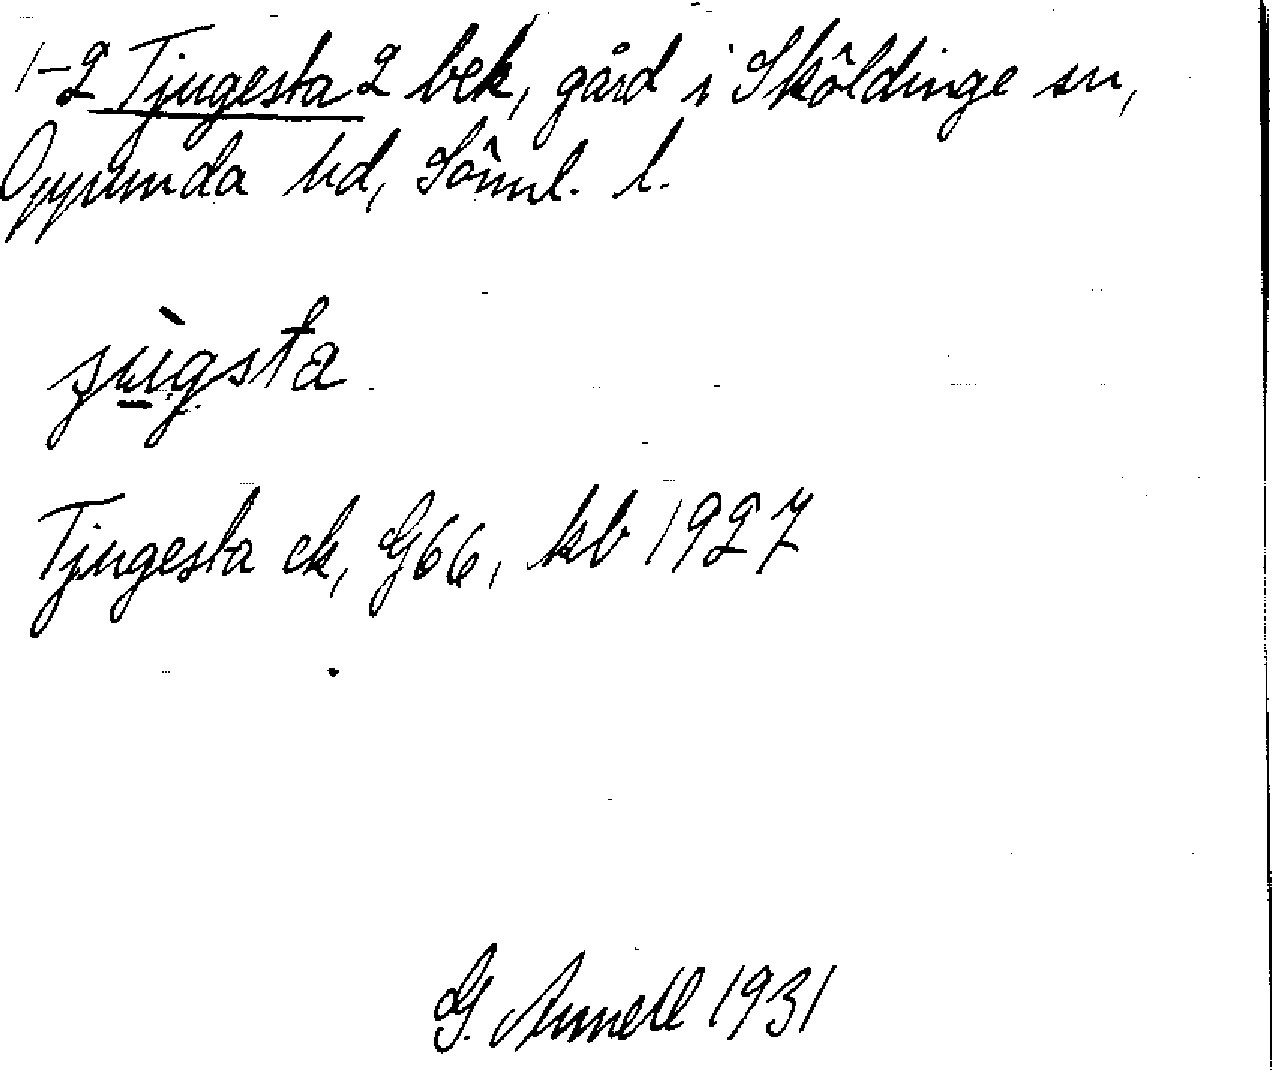 1-2 Tjugesta 2 bek, gård i Sköldinge sn,
Oppunda hd, Söml. l.
ʒùgsta
Tjugesta ek, G66, kb 1927
G. Annell 1931